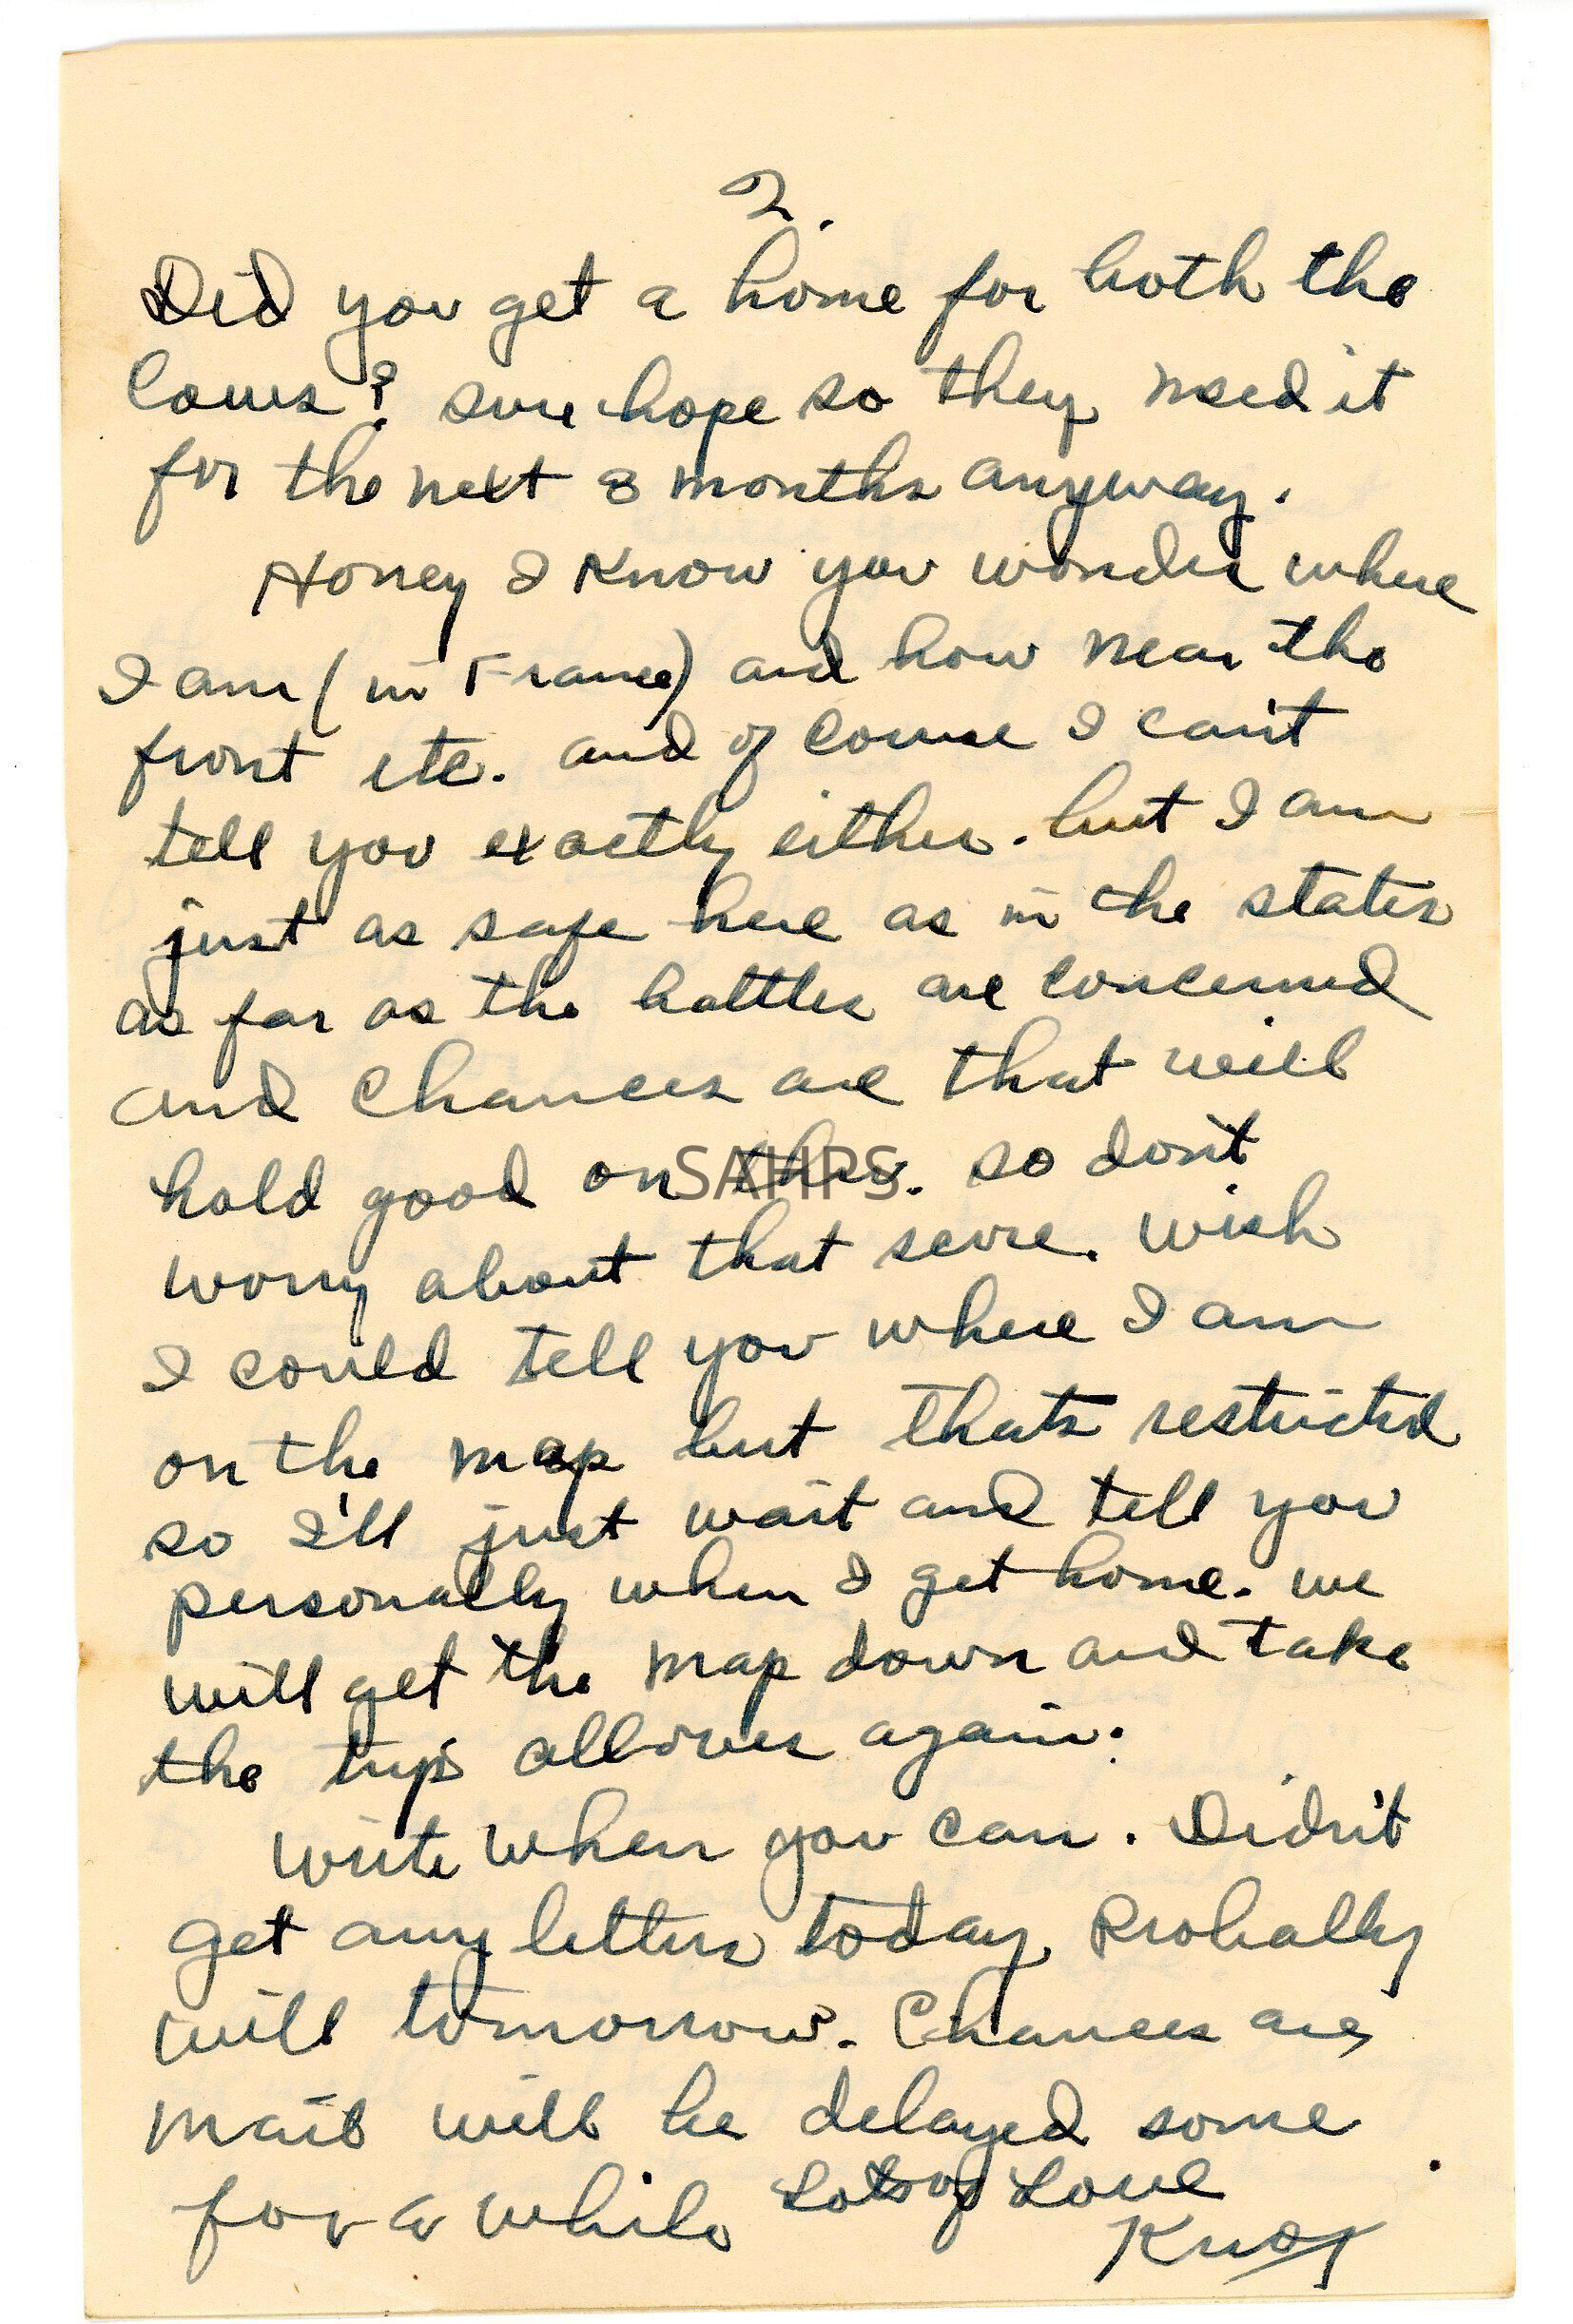 2.
Did you get a home for both the
Cows? sure hope so they need it
for the next 3 months anyway.
Honey I Know you wonder where
I am (in France) and how near the
front etc. and of course I can't
tell you exactly either. but I am
just as safe here as in the states
as far as the battles are concerned
and Chances are that will
hold good on thru. so don't
worry about that score. wish
I could tell you where I am
on the map but thats restricted
so I'll just wait and tell you
personally when I get home. we
will get the map down and take
the trips all over again.
write when you can. Didn't
get any letters today Probally
will tomorrow. Chances are,
mail will be delayed some
for a while Lots of Love
Knox
SAHPS